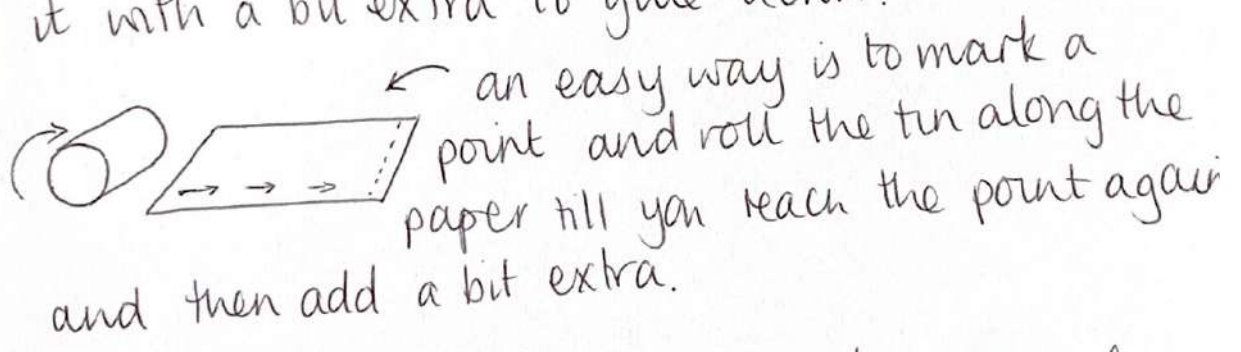 it with a bit extra to glue down.
an easy way is to mark a
point and roll the tin along the
paper till you reach the point again
and then add a bit extra.